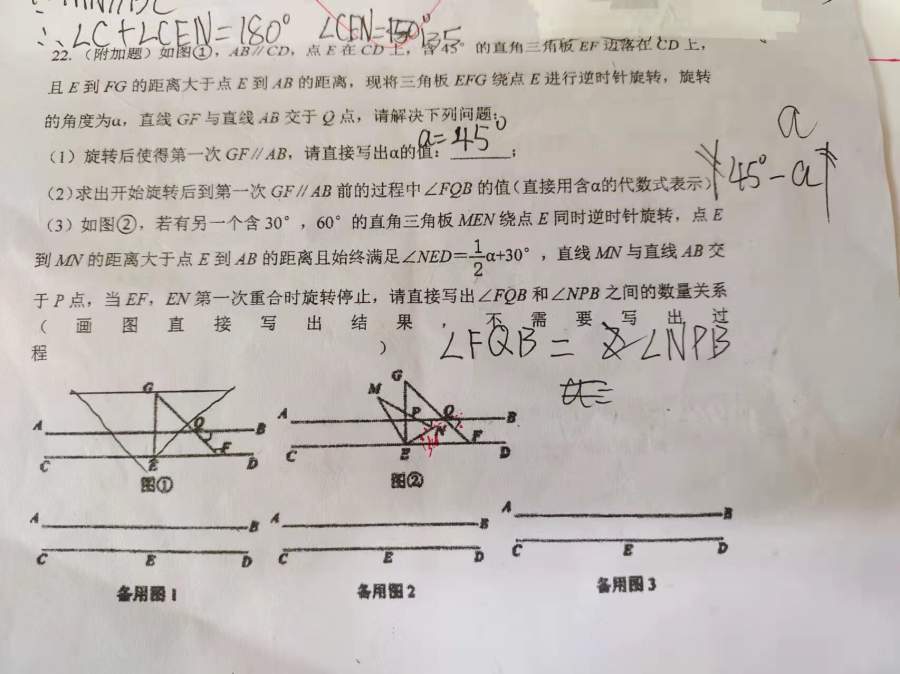 ∴∠C+∠CEN=180° ∠CEN=135°
22.（附加题）如图①，AB∥CD，点E在CD上，含45°的直角三角板EF边落在CD上，
且E到FG的距离大于点E到AB的距离，现将三角板EFG绕点E进行逆时针旋转，旋转
的角度为α，直线GF与直线AB交于Q点，请解决下列问题：
（1）旋转后使得第一次GF∥AB，请直接写出α的值：a=45°；
（2）求出开始旋转后到第一次GF∥AB前的过程中∠FQB的值（直接用含α的代数式表示）
a
45°-a
（3）如图②，若有另一个含30°，60°的直角三角板MEN绕点E同时逆时针旋转，点E
到MN的距离大于点E到AB的距离且始终满足∠NED=1/2α+30°，直线MN与直线AB交
于P点，当EF，EN第一次重合时旋转停止，请直接写出∠FQB和∠NPB之间的数量关系
（画图直接写出结果，不需要写出过
程）
∠FQB=2∠NPB
G
A Q B
C E F D
图①
M G
A P Q B
N
C E F D
图②
A B
C E D
备用图1
A B
C E D
备用图2
A B
C E D
备用图3